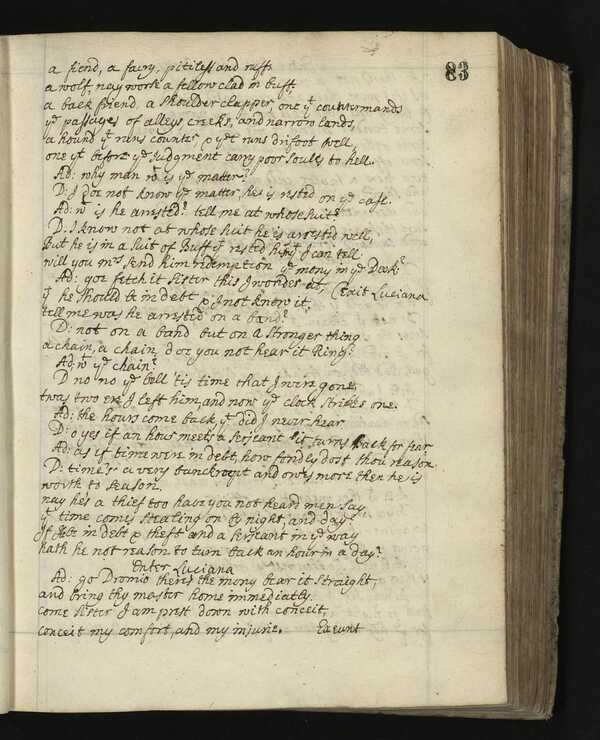 83
a fiend, a fairy, pitiless and ruff
a wolf, nay work a fellow clad in buff,
a back friend a shoulder clapper, one yt countermands
ye passages of alleys creeks, and narrow lands,
a hound yt runs counter & yet runs drifoot well,
one yt before ye Judgment carry poor soules to hell.
Ad: why man wt is ye matter?
D: I doe not know ye matter, he is rested on ye case.
Ad: wt is he arrested? tell me at whose suit?
D. I know not at whose suit he is arested well,
But he is in a suit of Buff yt rested him, yt I can tell
will you mrs send him redemption ye mony in ye Desk?
Ad: goe fetch it sister this I wonder at, (Exit Luciana
yt he should be in debt & I not know it.
tell me was he arrested on a band?
D: not on a band but on a stronger thing
a chain, a chain, doe you not hear it Ring?
Ad: wt ye chain?
D no no ye bell 'tis time that I were gone
twas two ere I left him, and now ye clock strikes one.
Ad: the hours come back, yt did I never hear
D: o yes if an hour meets a serjeant it turns back for fear
Ad: as if time were in debt, how fondly dost thou reason
D: time's a very banckroupt and owes more then he is
worth to season.
nay he's a thief too have you not heard men say,
yt time comes stealing on by night, and day?
If he be in debt & theft and a serjeant in ye way
hath he not reason to turn back an hour in a day?
Enter Luciana
Ad: go Dromio there's the mony bear it straight,
and bring thy master home immediatly.
come sister I am prest down with conceit,
conceit my comfort, and my injurie. Exeunt